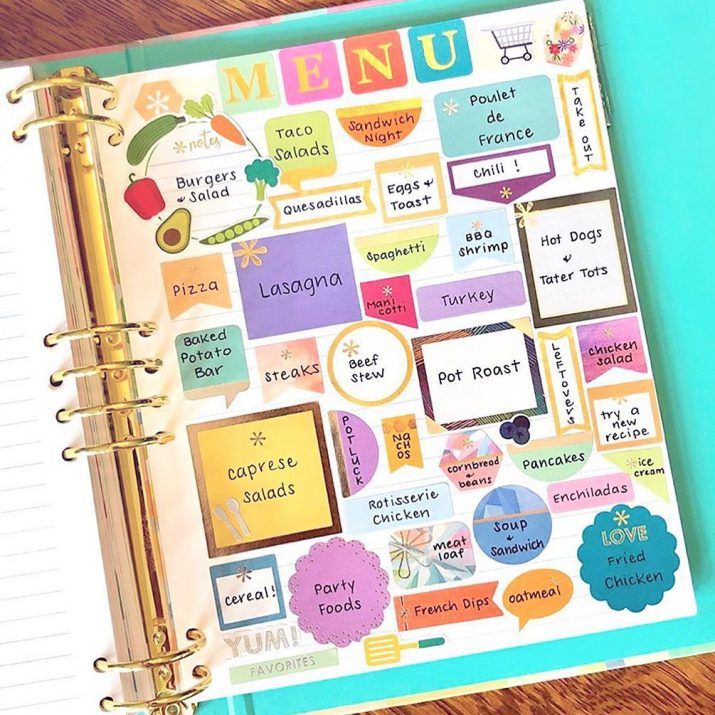 MENU
notes
Burgers
& Salad
Taco
Salads
Sandwich
Night
Poulet
de
France
Take out
Quesadillas
Eggs &
Toast
Chili !
Pizza
Lasagna
Spaghetti
BBQ
Shrimp
Hot Dogs
&
Tater Tots
Mani
cotti
Turkey
Baked
Potato
Bar
Steaks
Beef
Stew
Pot Roast
Leftovers
Chicken
Salad
Caprese
Salads
Potluck
Na
chos
cornbread
&
beans
Pancakes
try a
new
recipe
ice
cream
Rotisserie
Chicken
Enchiladas
Soup
&
Sandwich
meat
loaf
LOVE
Fried
Chicken
cereal!
Party
Foods
French Dips
oatmeal
YUM!
FAVORITES